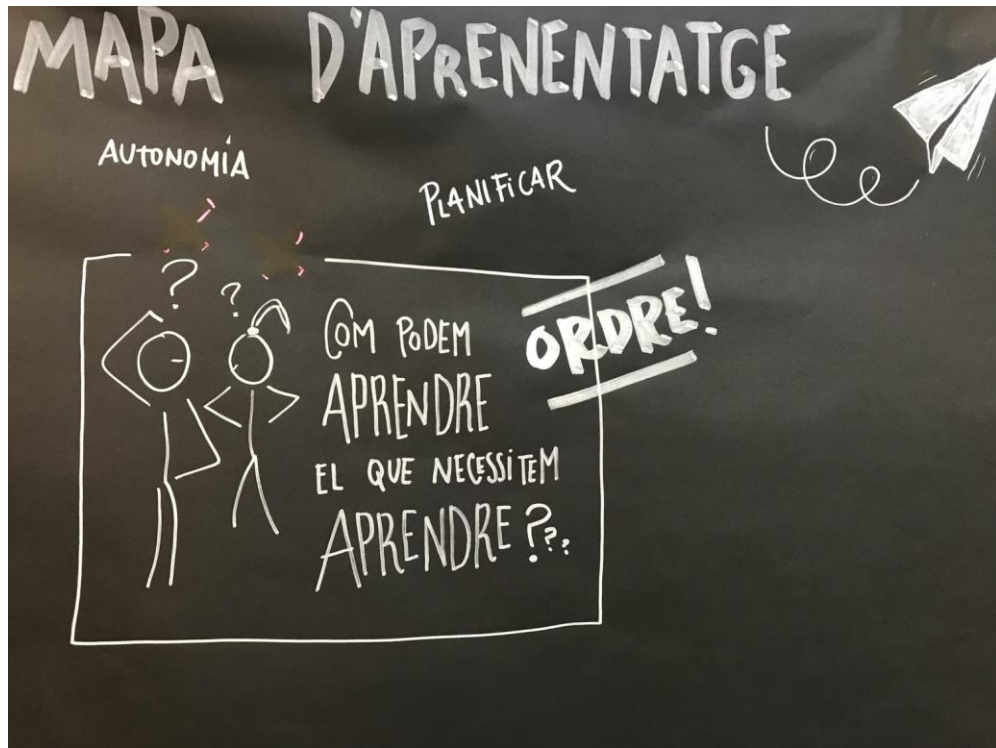 MAPA D'APRENENTATGE
AUTONOMÍA
PLANIFICAR
? ?
COM PODEM
ORDRE!
APRENDRE
EL QUE NECESSITEM
APRENDRE ???